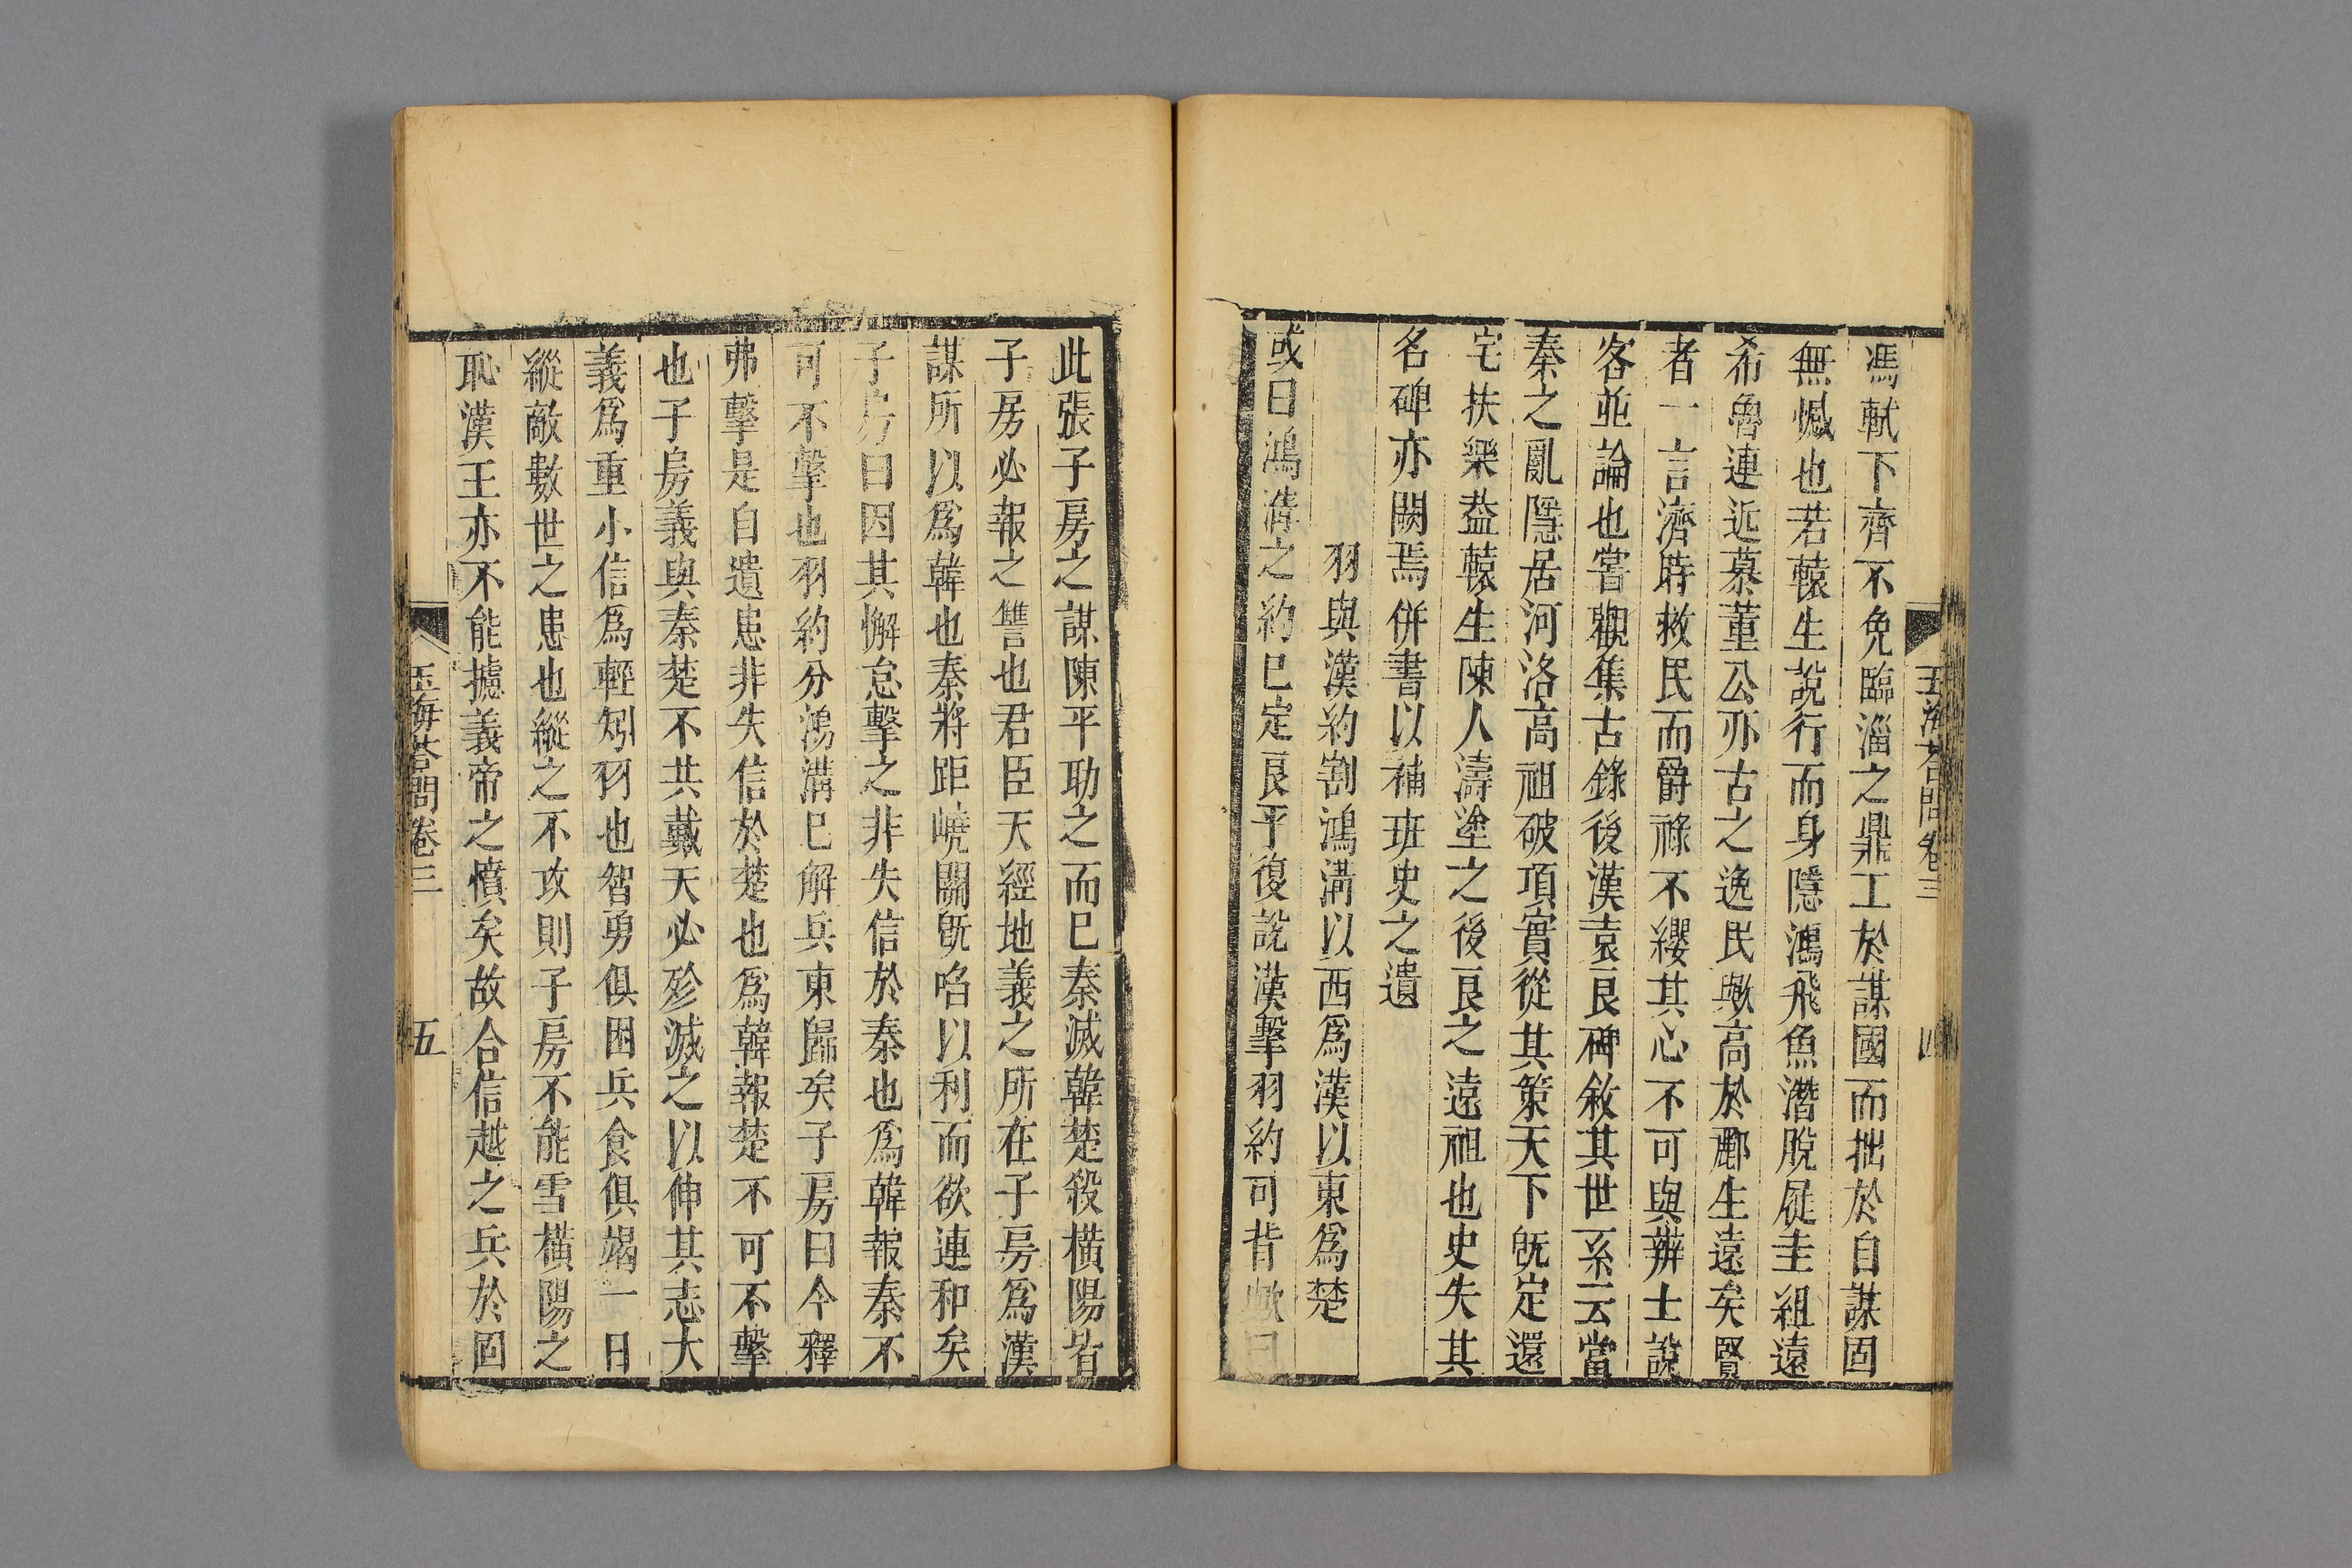 馮軾下齊不免臨淄之鼎工於謀國而拙於自謀固
無憾也若轅生說行而身隱鴻飛魚潛脫屣圭組遠
希魯連近慕董公亦古之逸民歟高於酈生遠矣賢
者一言濟時救民而爵祿不纓其心不可與辨士說
客並論也嘗觀集古錄後漢袁良碑敘其世系云當
秦之亂隱居河洛高祖破項實從其策天下旣定還
宅扶樂葢轅生陳人濤塗之後良之遠祖也史失其
名碑亦闕焉併書以補班史之遺
羽與漢約割鴻溝以西爲漢以東爲楚
或曰鴻溝之約已定良平復說漢擊羽約可背歟曰
玉海荅問卷三 四
此張子房之謀陳平助之而已秦滅韓楚殺橫陽皆
子房必報之讐也君臣天經地義之所在子房爲漢
謀所以爲韓也秦將距嶢關旣啗以利而欲連和矣
子房曰因其懈怠擊之非失信於秦也爲韓報秦不
可不擊也羽約分鴻溝已解兵東歸矣子房曰今釋
弗擊是自遺患非失信於楚也爲韓報楚不可不擊
也子房義與秦楚不共戴天必殄滅之以伸其志大
義爲重小信爲輕矧羽也智勇俱困兵食俱竭一日
縱敵數世之患也縱之不攻則子房不能雪橫陽之
恥漢王亦不能攄義帝之憤矣故合信越之兵於固
玉海荅問卷三 五